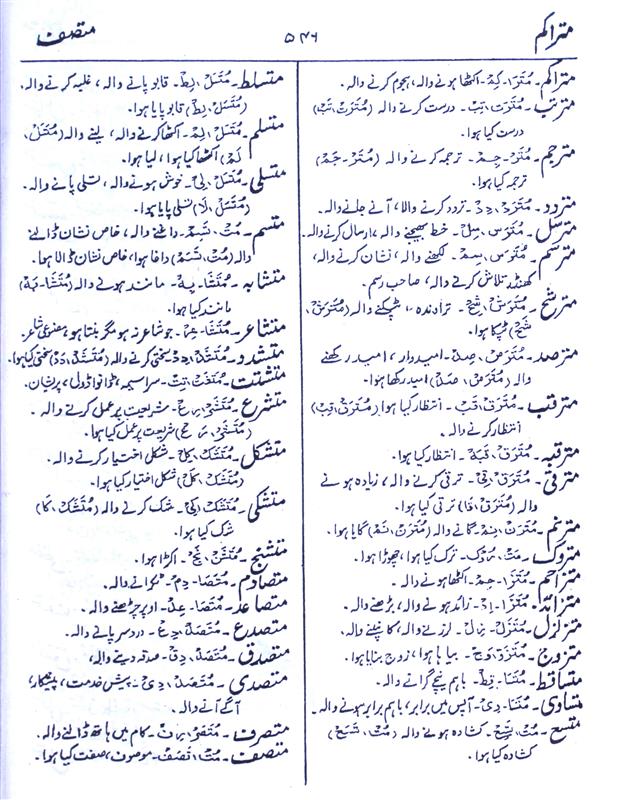 متراکم
۵۴۶
متصف
متراکم۔ مُتَرَا۔کِمْ۔ اکٹھا ہونے والہ، ہجوم کرنے والہ۔
مترتب۔ مُتَرَتْ۔تِبْ۔ درست کرنے والہ (مُتَرَتْ۔تَبْ)
درست کیا ہوا۔
مترجم۔ مُتَرْ۔جِمْ۔ ترجمہ کرنے والہ (مُتَرْ۔جَمْ)
ترجمہ کیا ہوا۔
متردد۔ مُتَرَدْ۔دِدْ۔ تردد کرنے والا، آنے جانے والہ۔
مترسل۔ مُتَرَسْ۔سِلْ۔ خط بھیجنے والہ، ارسال کرنے والہ۔
مترسم۔ مُتَرَسْ۔سِمْ۔ لکھنے والہ، نشان کرنے والہ،
کھنڈر تلاش کرنے والہ، صاحب رسم۔
مترشح۔ مُتَرَشْ۔شِحْ۔ تراوندہ، ٹپکنے والہ (مُتَرَشْ۔
شَحْ) ٹپکا ہوا۔
مترصد۔ مُتَرَصْ۔صِدْ۔ امیدوار، امید رکھنے
والہ (مُتَرَصْ۔صَدْ) امید رکھا ہوا۔
مترقب۔ مُتَرَقْ۔قَبْ۔ انتظار کیا ہوا (مُتَرَقْ۔قِبْ)
انتظار کرنے والہ۔
مترقبہ۔ مُتَرَقْ۔قَبَہْ۔ انتظار کیا ہوا۔
مترقی۔ مُتَرَقْ۔قِیْ۔ ترقی کرنے والہ، زیادہ ہونے
والہ (مُتَرَقْ۔قَا) ترقی کیا ہوا۔
مترنم۔ مُتَرَنْ۔نِمْ۔ گانے والہ (مُتَرَنْ۔نَمْ) گایا ہوا۔
متروک۔ مَتْ۔رُوکْ۔ ترک کیا ہوا، چھوڑا ہوا۔
متزاحم۔ مُتَزَا۔حِمْ۔ اکٹھا ہونے والہ۔
متزائد۔ مُتَزَا۔اِدْ۔ زائد ہونے والہ، بڑھنے والہ۔
متزلزل۔ مُتَزَلْ۔زِلْ۔ لرزنے والہ، کانپنے والہ۔
متزوج۔ مُتَزَوْ۔وَجْ۔ بیاہا ہوا، زوج بنایا ہوا۔
متساقط۔ مُتَسَا۔قِطْ۔ باہم نیچے گرانے والہ۔
متساوی۔ مُتَسَا۔وِیْ۔ آپس میں برابر، باہم برابر ہونے والہ۔
متسع۔ مُتْ۔تَسِعْ۔ کشادہ ہونے والہ (مُتْ۔تَسَعْ)
کشادہ کیا ہوا۔
متسلط۔ مُتَسَلْ۔لِطْ۔ قابو پانے والہ، غلبہ کرنے والہ۔
(مُتَسَلْ۔لِطْ) قابو پایا ہوا۔
متسلم۔ مُتَسَلْ۔لِمْ۔ اکٹھا کرنے والہ، لینے والہ (مُتَسَلْ۔
لَمْ) اکٹھا کیا ہوا، لیا ہوا۔
متسلی۔ مُتَسَلْ۔لِیْ۔ خوش ہونے والہ، تسلی پانے والہ۔
(مُتَسَلْ۔لَا) تسلی پایا ہوا۔
متسم۔ مُتْ۔تَسِمْ۔ داغنے والہ، خاص نشان ڈالنے
والہ (مُتْ۔تَسَمْ) داغا ہوا، خاص نشان ڈالا ہوا۔
متشابہ۔ مُتَشَا۔بِہْ۔ مانند ہونے والہ (مُتَشَا۔بَہْ)
مانند کیا ہوا۔
متشاعر۔ مُتَشَا۔عِرْ۔ جو شاعر نہ ہو مگر بنتا ہو، مصنوعی شاعر۔
متشدد۔ مُتَشَدْ۔دِدْ سختی کرنے والہ (مُتَشَدْ۔دَدْ) سختی کیا ہوا۔
متشتت۔ مُتَشَتْ۔تِتْ۔ سراسیمہ، ڈانواڈول، پریشان۔
متشرع۔ مُتَشَرْ۔رِعْ۔ شریعت پر عمل کرنے والہ۔
(مُتَشَرْ۔رَعْ) شریعت پر عمل کیا ہوا۔
متشکل۔ مُتَشَکْ۔کِلْ۔ شکل اختیار کرنے والہ۔
(مُتَشَکْ۔کَلْ) شکل اختیار کیا ہوا۔
متشکی۔ مُتَشَکْ۔کِیْ۔ شک کرنے والہ (مُتَشَکْ۔کَا)
شک کیا ہوا۔
متشنج۔ مُتَشَنْ۔نِجْ۔ اکڑا ہوا۔
متصادم۔ مُتَصَا۔دِمْ۔ ٹکرانے والہ۔
متصاعد۔ مُتَصَا۔عِدْ۔ اوپر چڑھنے والہ۔
متصدع۔ مُتَصَدْ۔دِعْ۔ دردسر پانے والہ۔
متصدق۔ مُتَصَدْ۔دِقْ۔ صدقہ دینے والہ،
متصدی۔ مُتَصَدْ۔دِیْ۔ پیش خدمت، پیشکار،
آگے آنے والہ۔
متصرف۔ مُتَصَرْ۔رِفْ۔ کام میں ہاتھ ڈالنے والہ۔
متصف۔ مُتْ۔تَصَفْ۔ موصوف، صفت کیا ہوا۔